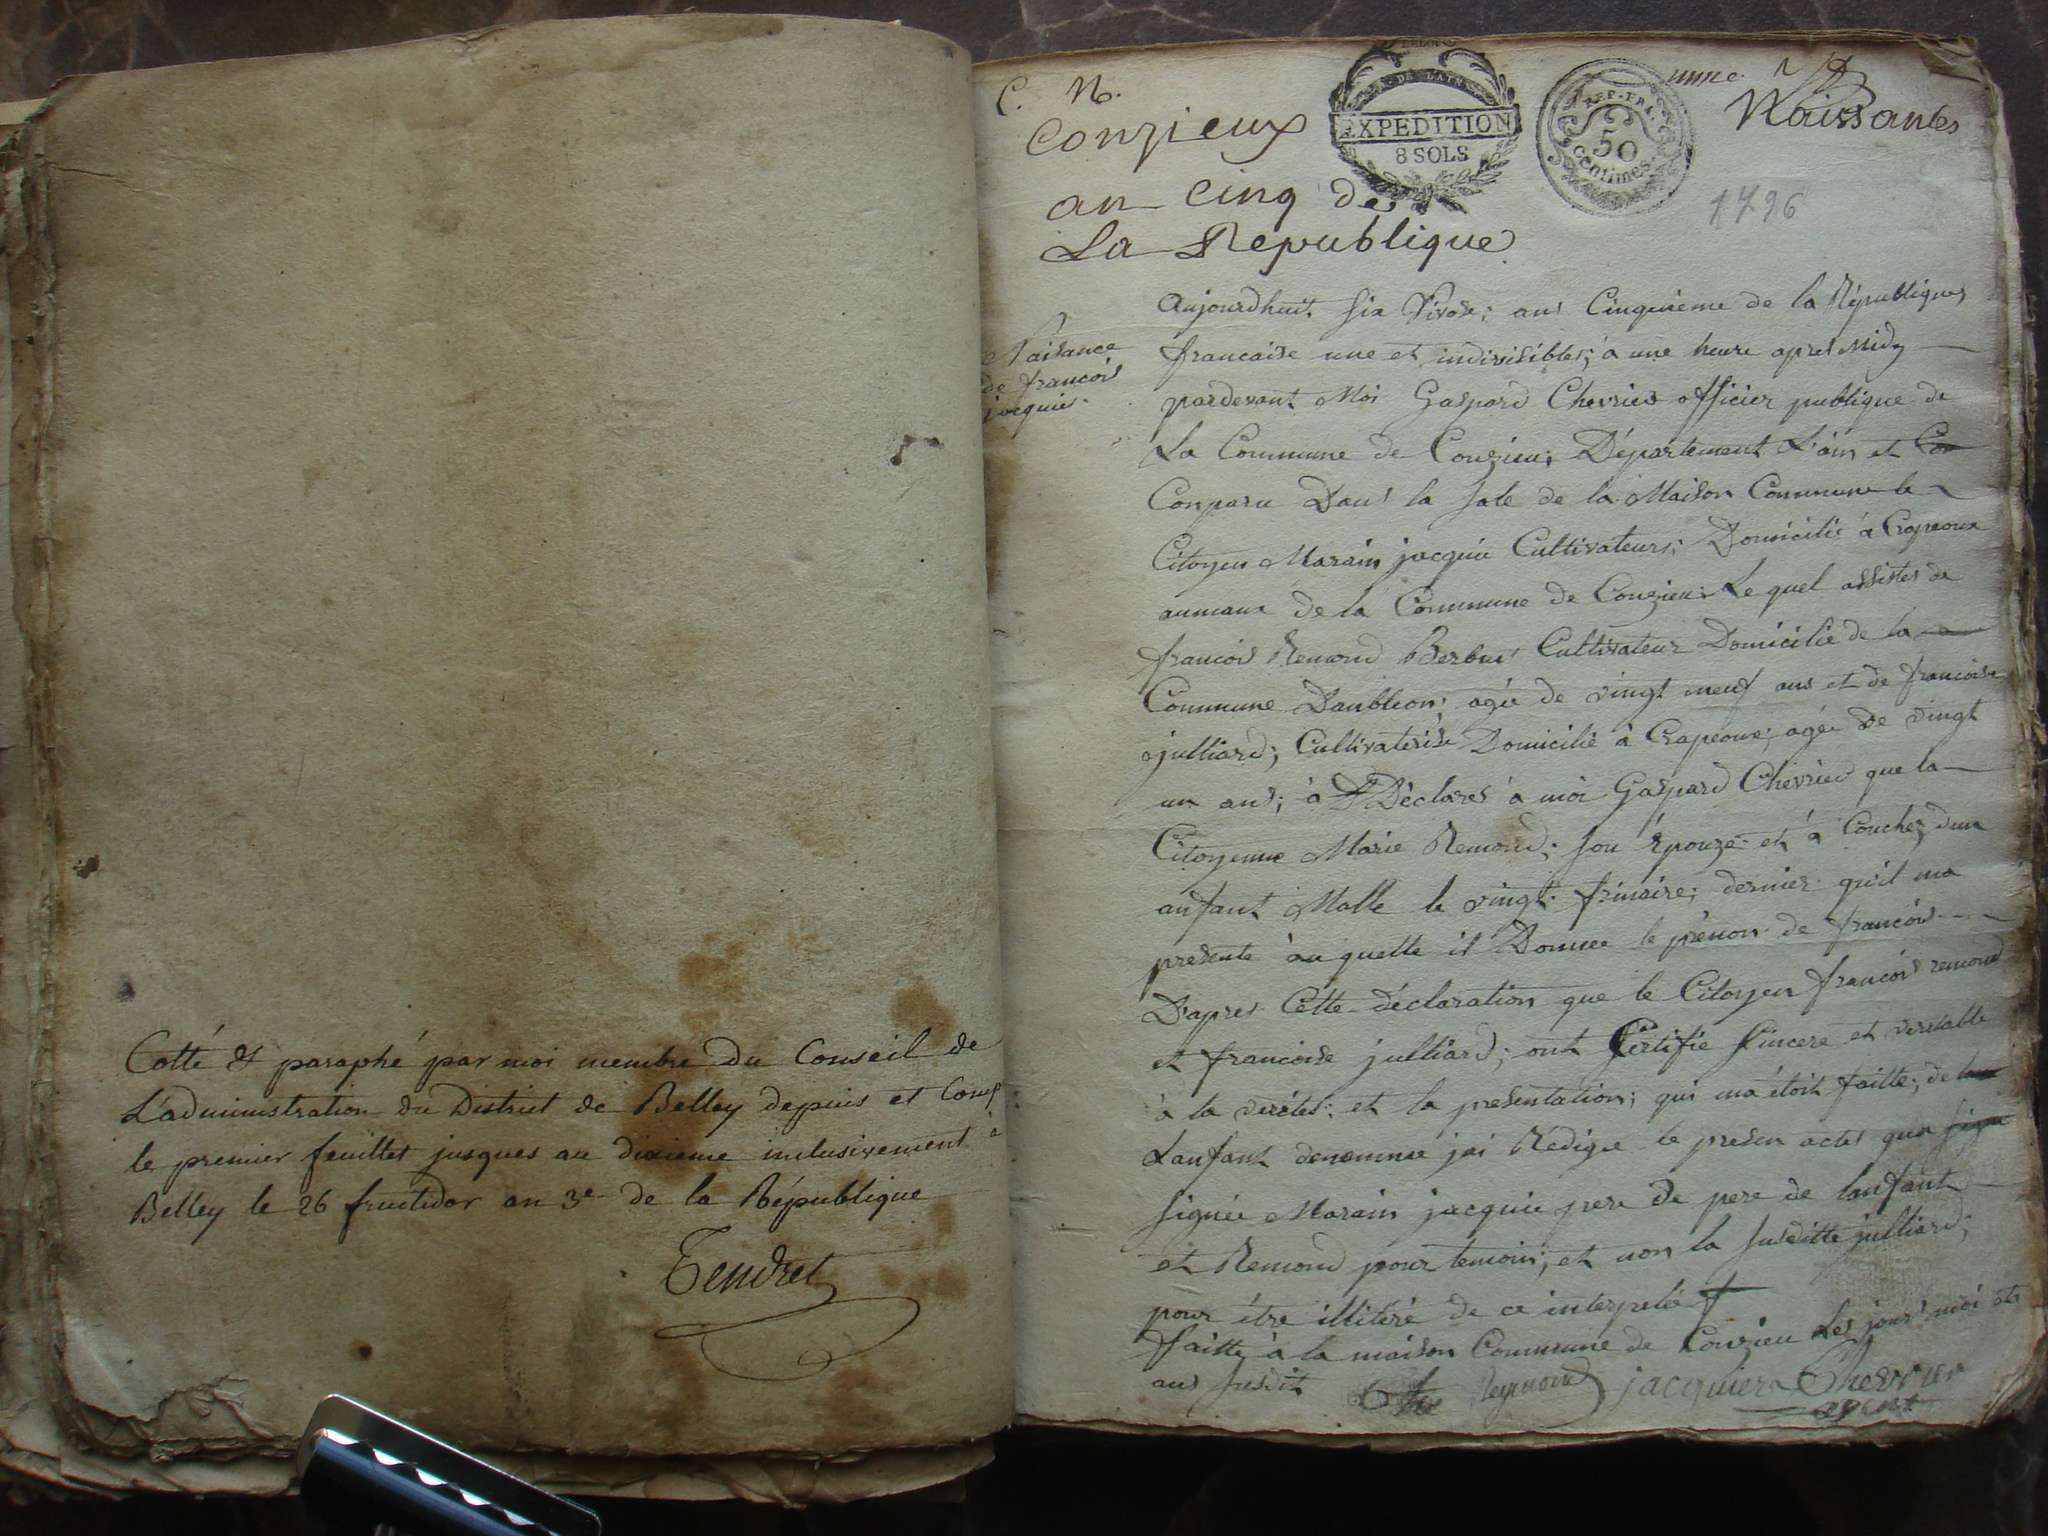 Cotté & paraphé par moi membre du Conseil de
L'administration du District de Belley depuis et Comp
le premier feuillet jusques au dixieme inclusivement à
Belley le 26 fructidor an 3e de la République
Tendret
C. N.
Conzieux
an cinq de
La Republique
DE L'AIN
EXPEDITION
8 SOLS
REP. FRA.
50
centimes
Naissances
1796
Naisance
de francois
jacquie
Aujourdhuit six Nivose; ans Cinquieme de la Républiques
francaise une et indivisibles; à une heure apres Midy
pardevant Moi Gaspard Chevrier officier publique de
La Commune de Conzieu; Département L'ain et Con
Conparu Dans la sale de la Maison Commune le
Citoyen Marain jacquie Cultivateurs; Domicilié à Crapeoux
aumaux de la Commune de Conzieu; Le quel assistes de
francois Remond Cultivateur Domicilié de la
Commune Danbleon; agée de vingt neuf ans et de francoise
julliard; Cultivaterise Domicilié à Crapeoux; agée de vingt
un ans; à Déclares à moi Gaspard Chevrier que la
Citoyenne Marie Remond; son épouze et à Couchez dun
anfant Malle le vingt frimaire; dernier qu'il ma
presente àu quelle il Donnee le prénon de francois
D'apres Cette déclaration que le Citoyen francois remond
et francoise julliard; ont Certifie sincere et veritable
à la verites; et la presentation; qui ma étoit faitte; de
Lanfant denommé jai Rédigée le presen actes qua signe
signée Marain jacquie pere de pere de lanfant
et Remond pour temoin; et non la susditte julliard;
pour étre illitéré de ce interpelié
ffaitte à la maison Commune de Conzieu Les jour moi et
ans susdit Reymond jacquier Chevrier
agent